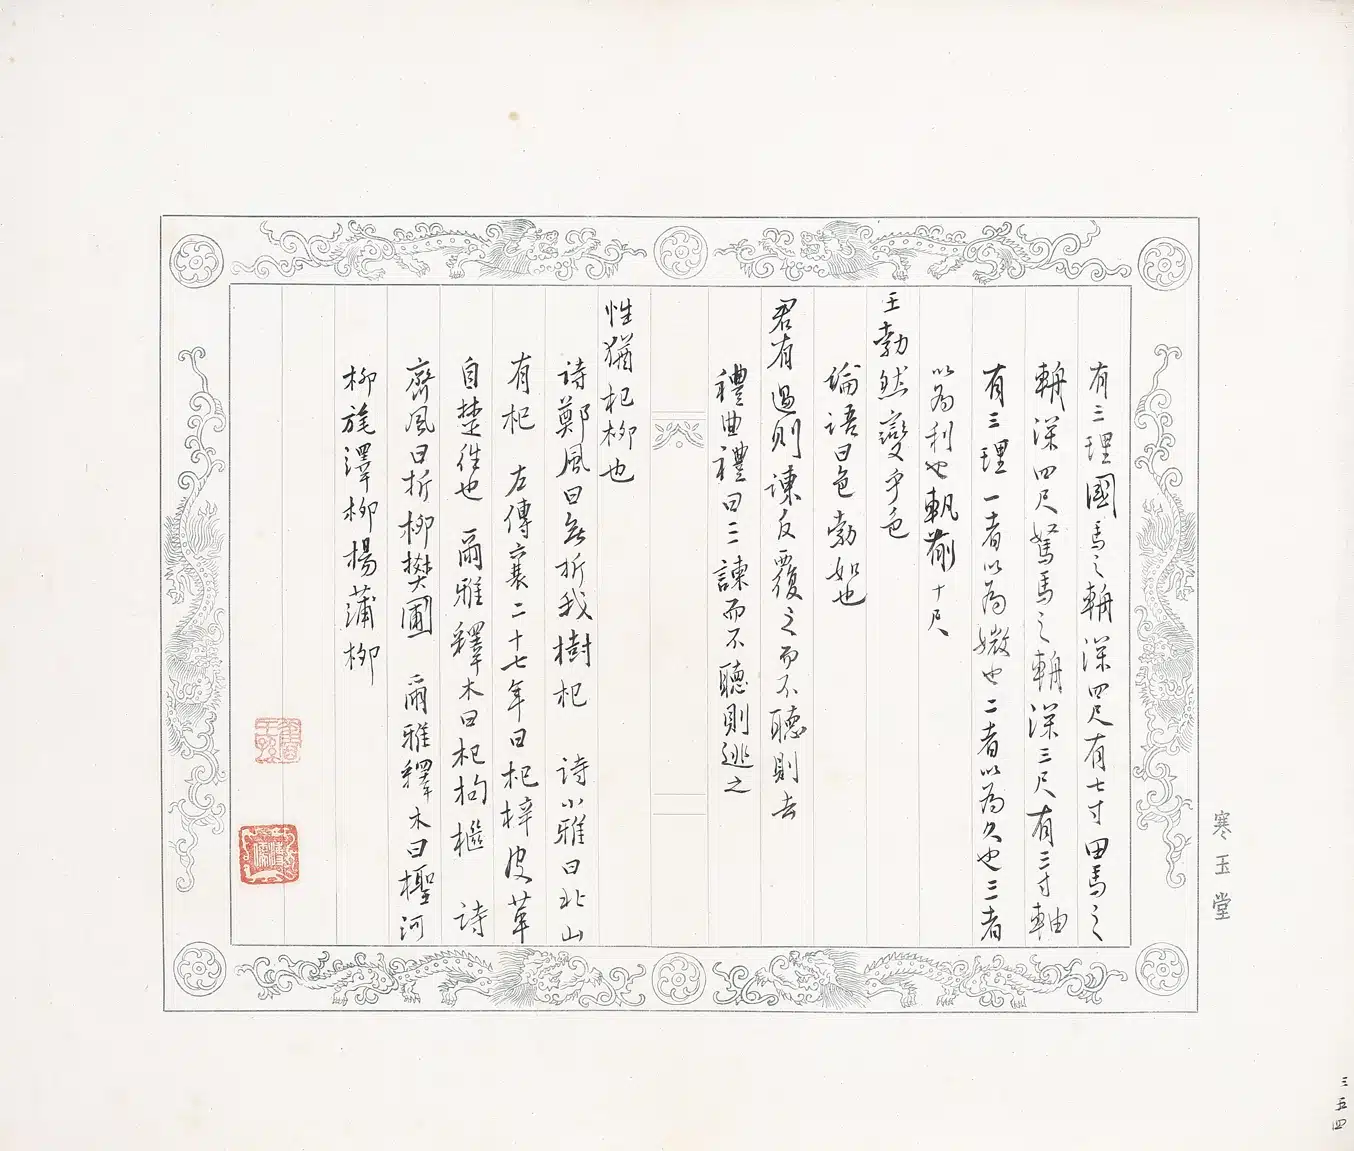 有三理國馬之輈深四尺有七寸田馬之
輈深四尺駑馬之輈深三尺有三寸軸
有三理一者以為媺也二者以為久也三者
以為利也軓前十尺
王勃然變乎色
論語曰色勃如也
君有過則諫反覆之而不聽則去
禮曲禮曰三諫而不聽則逃之
性猶杞柳也
詩鄭風曰無折我樹杞 詩小雅曰北山
有杞 左傳襄二十七年曰杞梓皮革
自楚往也 爾雅釋木曰杞枸檵 詩
齊風曰折柳樊圃 爾雅釋木曰檉河
柳旄澤柳楊蒲柳
寒玉堂
三五四